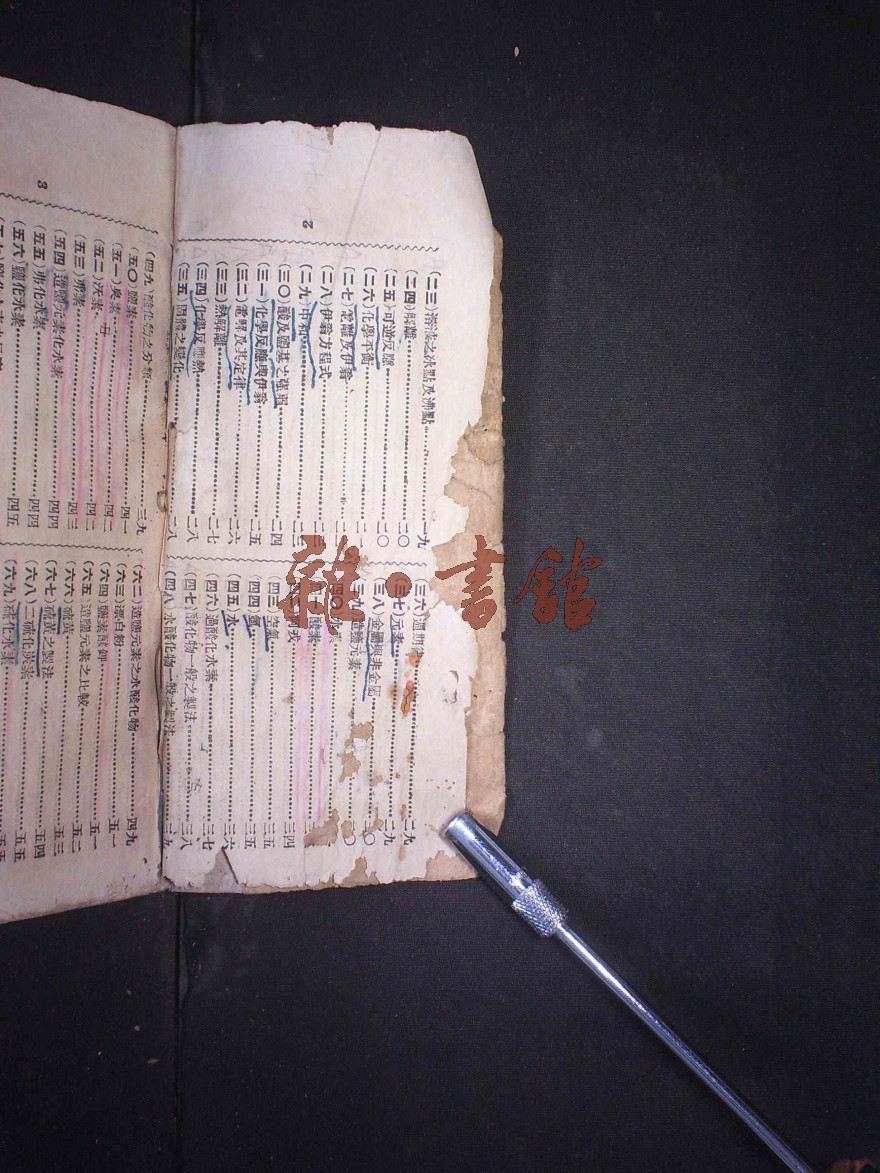 2
(二三)溶液之冰點及沸點……一九
(二四)解離……二〇
(二五)可逆反應……二〇
(二六)化學平衡……二〇
(二七)電離及伊翁……
(二八)伊翁方程式……
(二九)中和……二三
(三〇)酸及鹽基之強弱……二四
(三一)化學反應與伊翁……二五
(三二)電解及其定律……二六
(三三)熱解離……二七
(三四)化學反應熱……二八
(三五)固體之變化……二八
(三六)週期律……二九
(三七)元素……二九
(三八)金屬與非金屬……三〇
(三九)造鹽元素……
(四〇)
(四一)酸素……
(四二)……三四
(四三)空氣……三五
(四四)氫……三五
(四五)水……三六
(四六)過酸化水素……三七
(四七)酸化物一般之製法……三八
(四八)水酸化物一般之製法……三九
3
(四九)酸化物之分類……三九
(五〇)鹽素……四一
(五一)臭素……四二
(五二)沃素……四二
(五三)弗素……四三
(五四)造鹽元素化水素……四四
(五五)弗化水素……四四
(五六)鹽化水素……四五
(六二)造鹽元素之水酸化物……四九
(六三)漂白粉……五一
(六四)鹽素酸鉀……五一
(六五)造鹽元素之比較……五二
(六六)硫黃……五三
(六七)硫黃之製法……五四
(六八)二硫化炭素……五五
(六九)硫化水素……五五
雜·書館